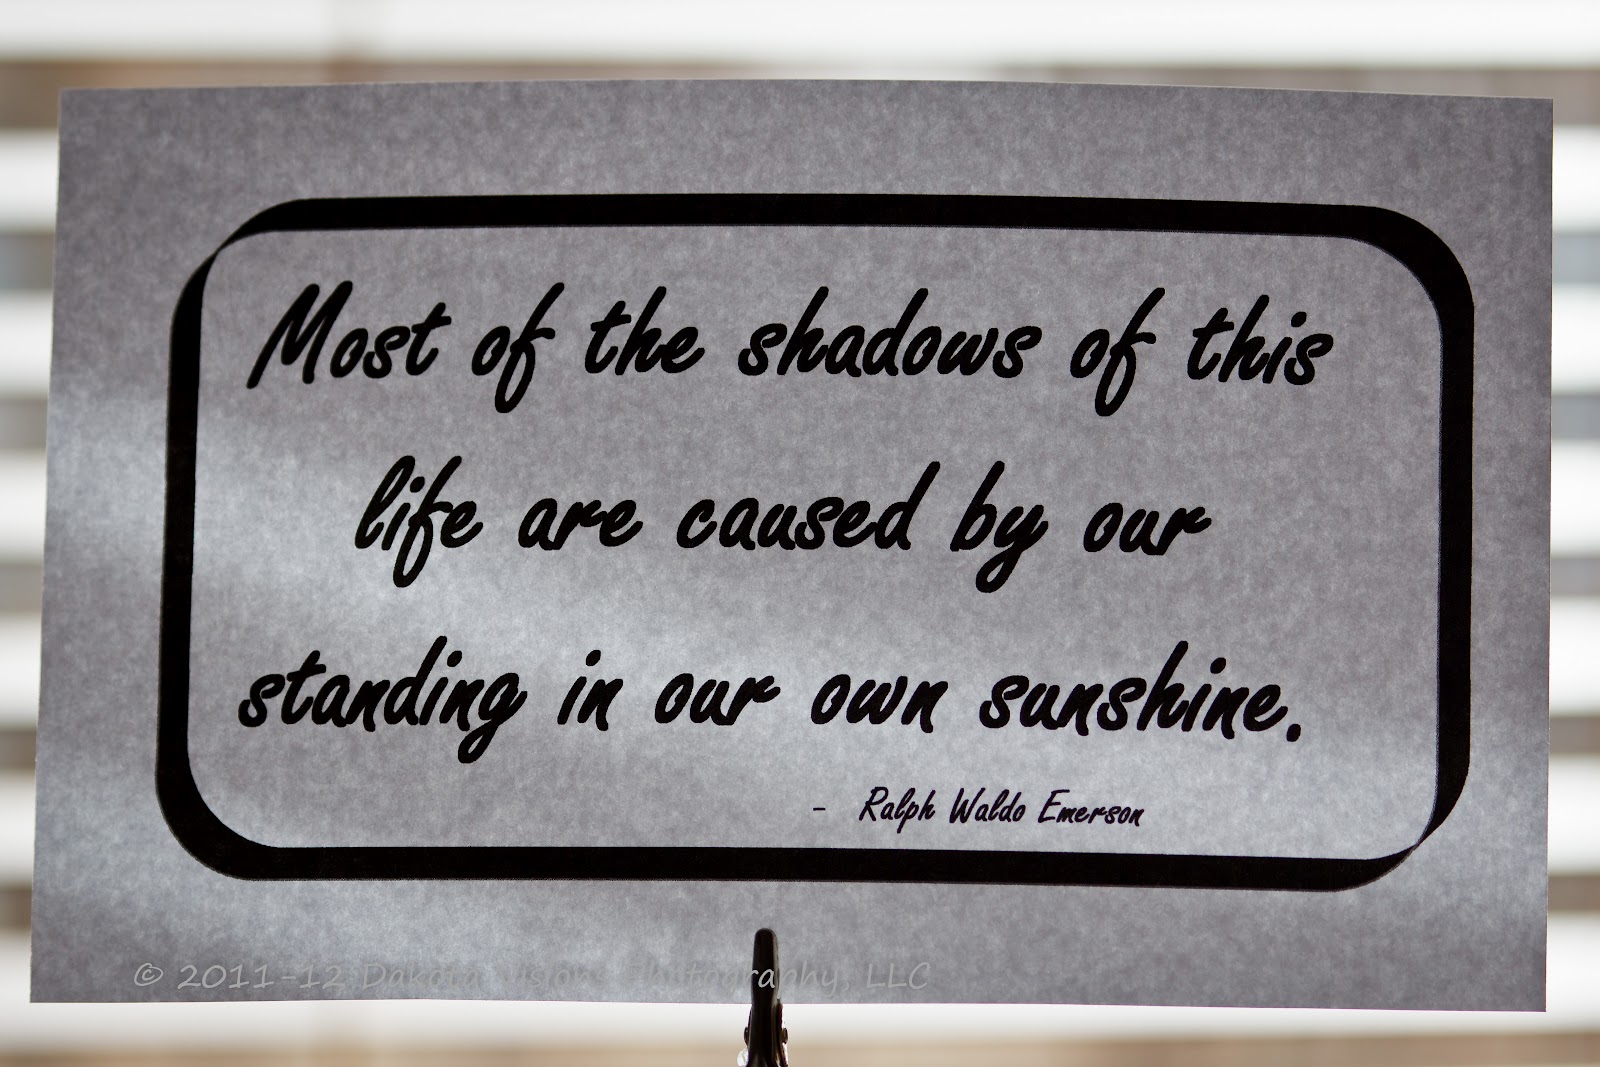 Most of the shadows of this
life are caused by our
standing in our own sunshine.
- Ralph Waldo Emerson
© 2011-12 Dakota Visions Photography, LLC